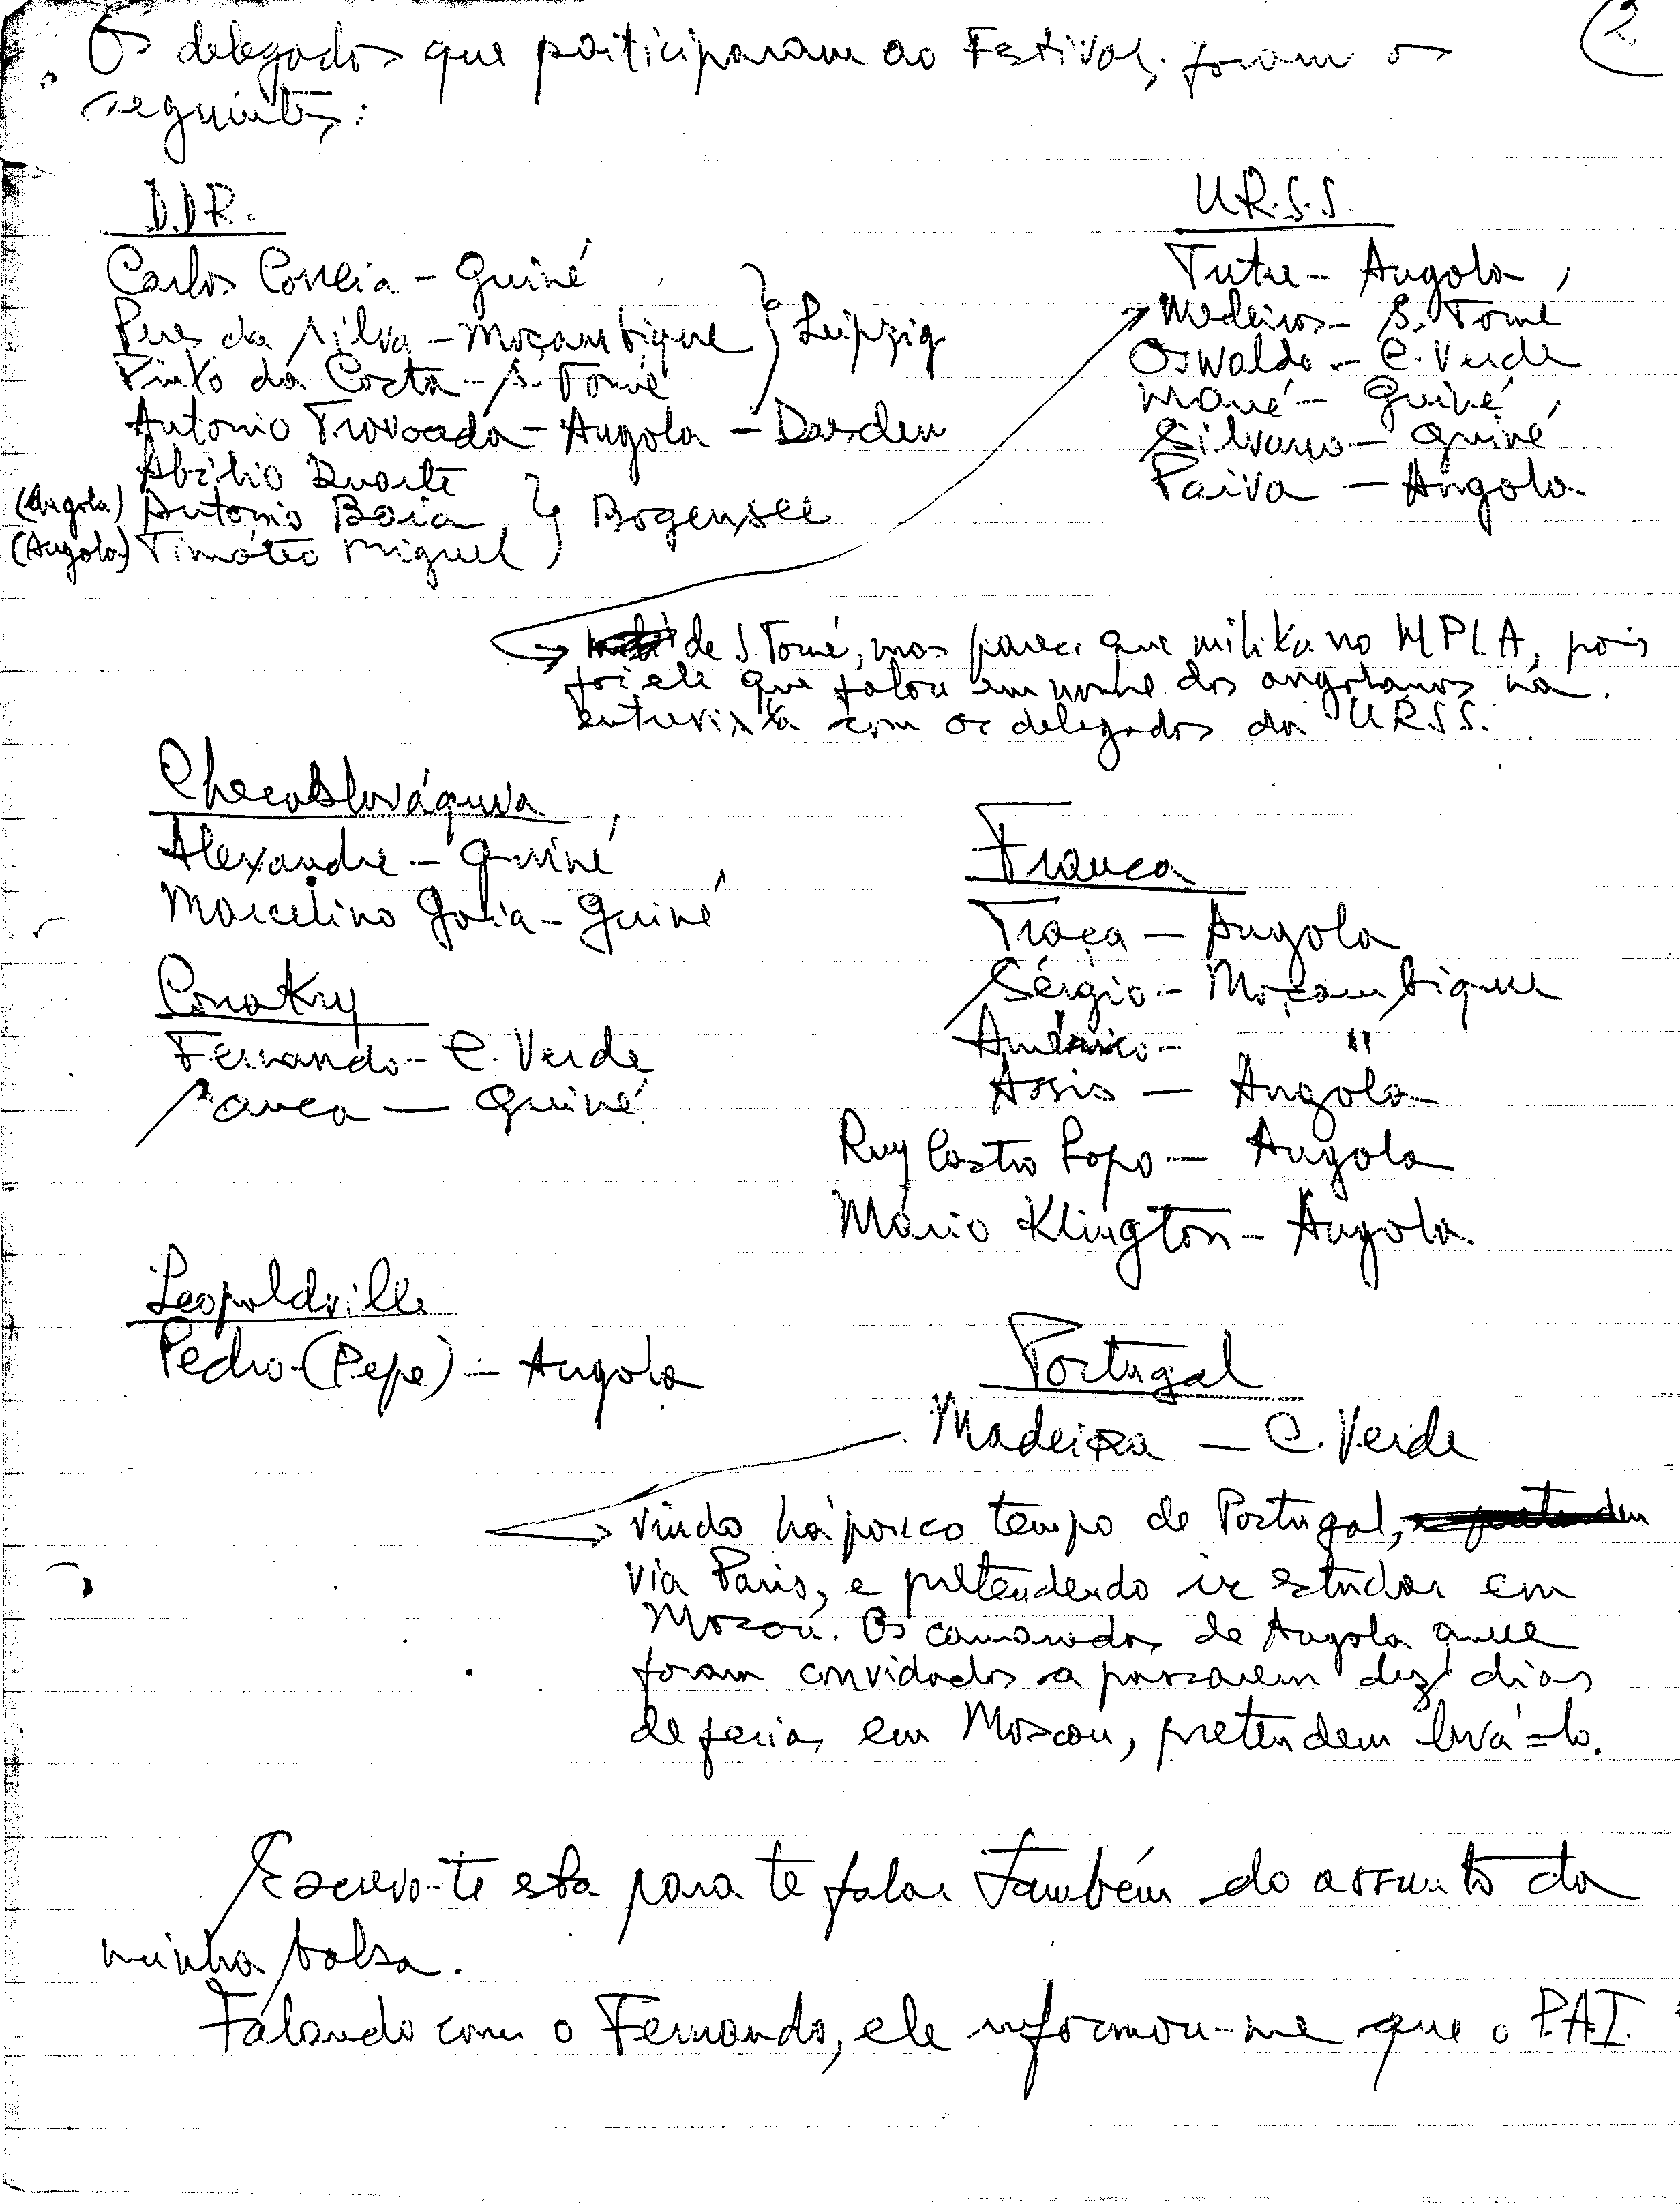 2
Os delegados que participaram ao Festival, foram os
seguintes:
D.D.R.
Carlos Correia - Guiné
Peres da Silva - Moçambique } Leipzig
Pinto da Costa - S. Tomé
Antonio Trovoada - Angola - Dresden
Abílio Duarte
(Angola) Antonio Baia } Bogensee
(Angola) Timóteo Miguel
U.R.S.S.
Tutu - Angola
Medeiros - S. Tomé
Oswaldo - C. Verde
Mané - Guiné
Silvano - Guiné
Paiva - Angola
de S. Tomé, mas parece que milita no MPLA, pois
foi ele que falou em nome dos angolanos na
entrevista com os delegados da URSS.
Checoslováquia
Alexandre - Guiné
Marcelino - Guiné
Conakry
Fernando - C. Verde
- Guiné
França
Traça - Angola
Sérgio - Moçambique
Américo - "
Assis - Angola
Ruy Castro Lopo - Angola
Mário Klington - Angola
Leopoldville
Pedro (Pepe) - Angola
Portugal
Madeira - C. Verde
vindo há pouco tempo de Portugal,
via Paris, e pretendendo ir estudar em
Moscou. Os camaradas de Angola que
foram convidados a passarem dez dias
de ferias em Moscou, pretendem levá-lo.
Escrevo-te esta para te falar também do assunto da
minha bolsa.
Falando com o Fernando, ele informou-me que o P.A.I.